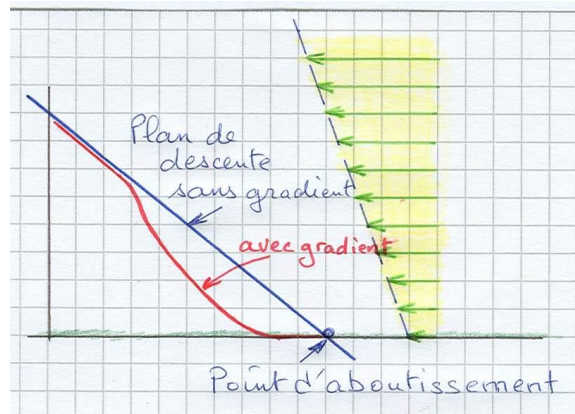 Plan de
descente
sans gradient
avec gradient
Point d'aboutissement